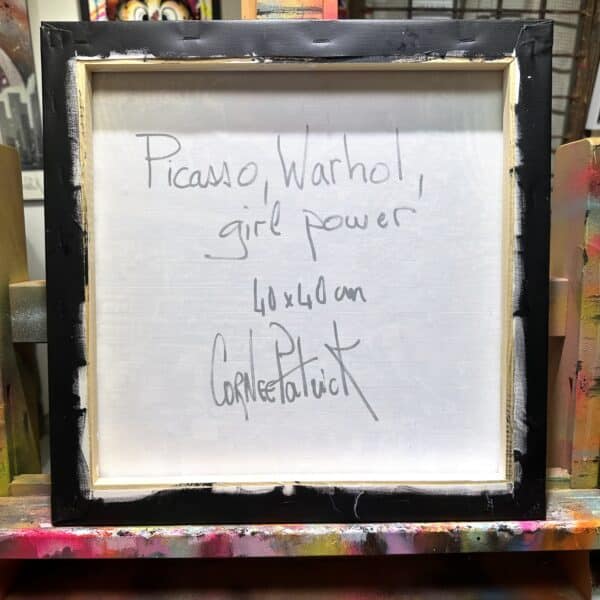 Picasso, Warhol,
girl power
40x40 cm
CORNEEPatrick